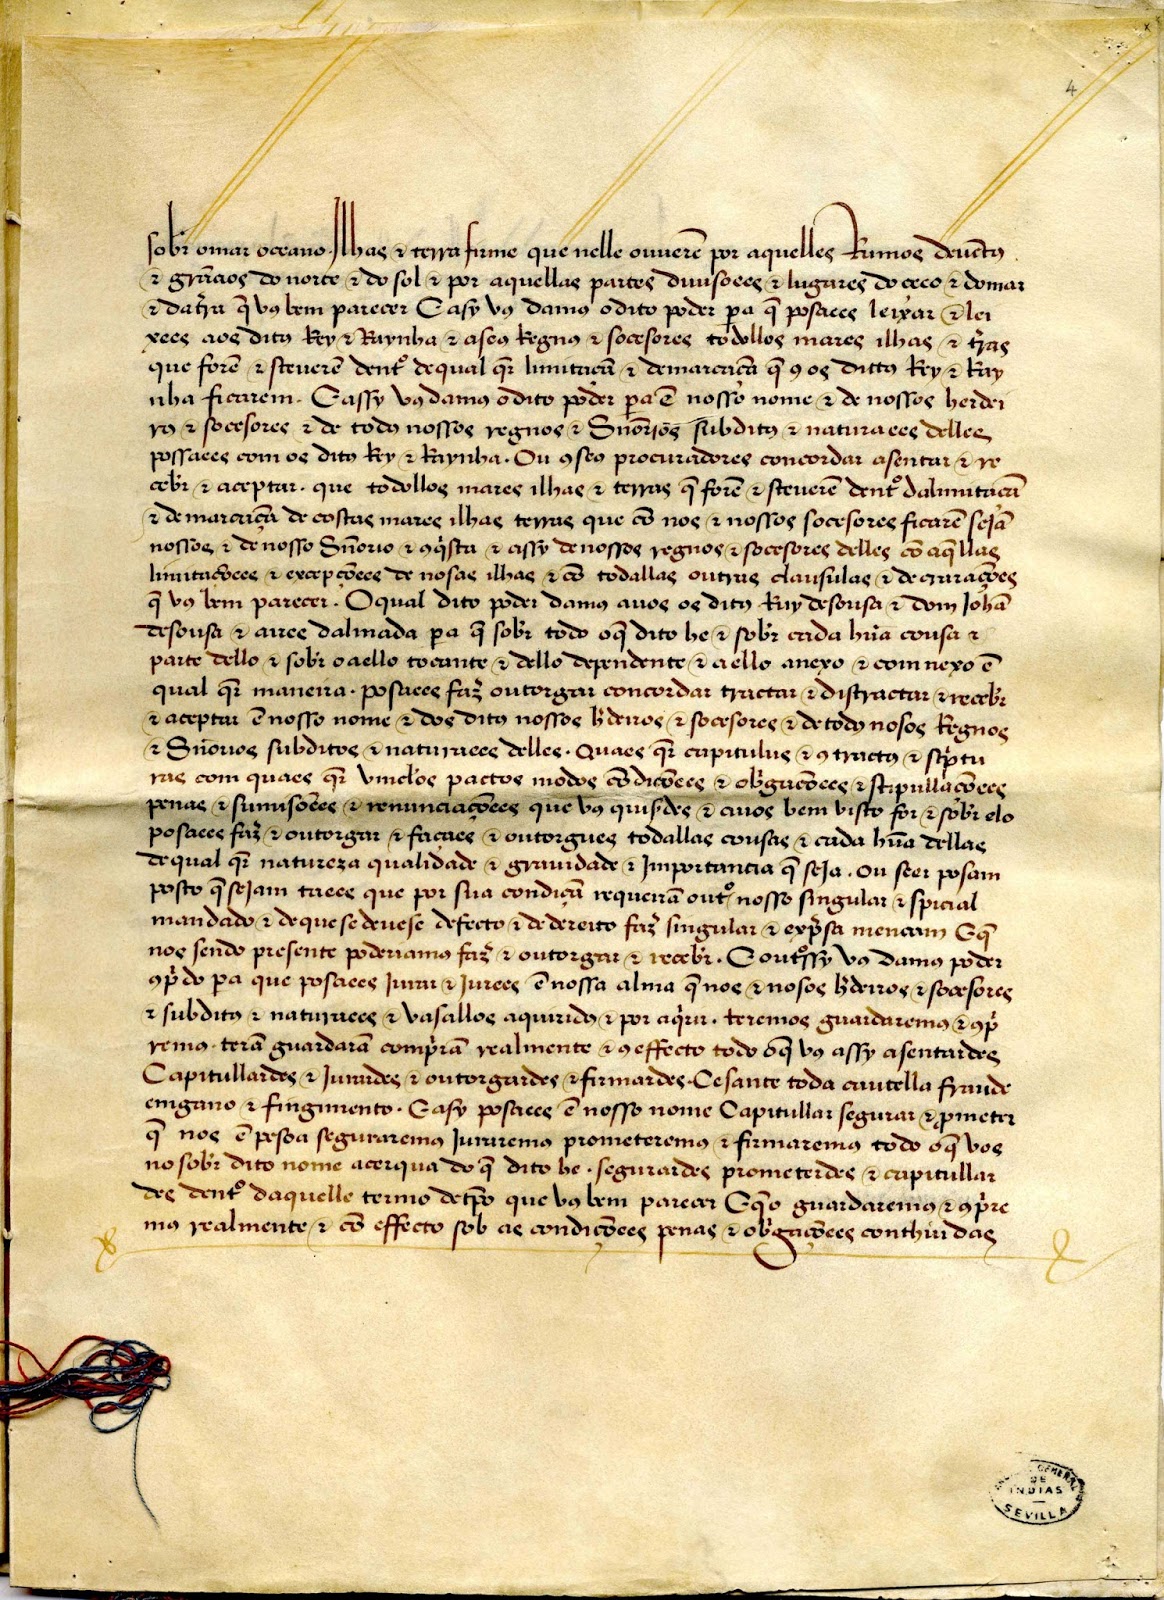 4
sobr̃ omar oceano. Ilhas & terra firme que nelle ouuerẽ por aquelles Rumos deuẽtos
& graãos do norte & do sol & por aquellas partes diuisoees & lugares do ceeo & do mar
& da tr̃ra q̃ vos bem parecer E asy vos damos o dito poder pa q̃ posaees leixar & lei
xees aos ditos Rey & Raynha & aseos Regnos & socesores todollos mares ilhas & tr̃as
que forẽ & steuerẽ dentº de qual qr̃ limitaçã & demarcaçã q̃ 9 os dittos Rey & Ray
nha ficarem. E assy vos damos o dito poder pa ẽ nosso nome & de nossos herdei
ros & socesores & de todos nossos regnos & Sñorios subditos & naturaees delles
possaees com os ditos Rey & Raynha. Ou 9 seos procuradores concordar asentar & re
cebr̃ & aceptar. que todollos mares ilhas & terras q̃ forẽ & steuerẽ dentº da limitaçã
& demarcaçã de costas mares ilhas terras que cõ nos & nossos socesores ficarẽ sejã
nossos & de nosso Sñorio & 9q̃sta & assy de nossos regnos & socesores delles cõ aq̃llas
limitaçõees & excepçõees de nosas ilhas & cõ todallas outras clausulas & decraraçõees
q̃ vos bem parecer. O qual dito poder damos auos os ditos Ruy de sousa & dom Johã
de sousa & aires dalmada pa q̃ sobr̃ todo oq̃ dito he & sobr̃ cada hũa cousa &
parte dello & sobr̃ o aello tocante & dello dependente & a ello anexo & comnexo ẽ
qual qr̃ maneira. posaees faz̃ outorgar concordar tractar & distractar & recebr̃
& aceptar ẽ nosso nome & dos ditos nossos h̃deiros & socesores & de todos nosos Regnos
& Sñorios subditos & naturaees delles. Quaes qr̃ capitulos & 9tractos & scp̃tu
ras com quaes qr̃ vincl̃os pactos modos cõdiçõees & obr̃gaçõees & stipullaçõees
penas & sumisoẽes & renunciaçõees que vos quisr̃des & auos bem visto for & sobr̃ elo
posaees faz̃ & outorgar & façaes & outorgues todallas cousas & cada hũa dellas
de qual qr̃ natureza qualidade & grauidade & Importancia q̃ seja. Ou seer posam
posto q̃ sejam taees que por sua condiçã requeirã outº nosso singular & spicial
mandado & de que se deuese de fecto & de dereito faz̃ singular & exp̃sa mencam E q̃
nos sendo presente poderiamos faz̃ & outorgar & recebr̃. E outºssy vos damos poder
9p̃do pa que posaees Jurar & Jurees ẽ nossa alma q̃ nos & nosos h̃deiros & socesores
& subditos & naturaees & vasallos aquiridos & por aq̃rir. teremos guardaremos & 9p̃
remos. terã guardarã comp̃rã realmente & 9 effecto todo oq̃ vos assy asentardes
Capitullardes & Jurardes & outorgardes & firmardes. Cesante toda cautella fraude
emgano & fingimento. E asy posaees ẽ nosso nome Capitullar segurar & p̃meter
q̃ nos ẽ pesoa seguraremos Juraremos prometeremos & firmaremos todo oq̃ vos
no sobr̃ dito nome acerqua do q̃ dito he. segurardes prometerdes & capitullar
des dentº daquelle termo de tp̃o que vos bem parecer E q̃ o guardaremos & 9p̃re
mos realmente & cõ effecto sob as condiçõees penas & obr̃gaçõees conthiudas
GENERAL
DE
INDIAS
SEVILLA